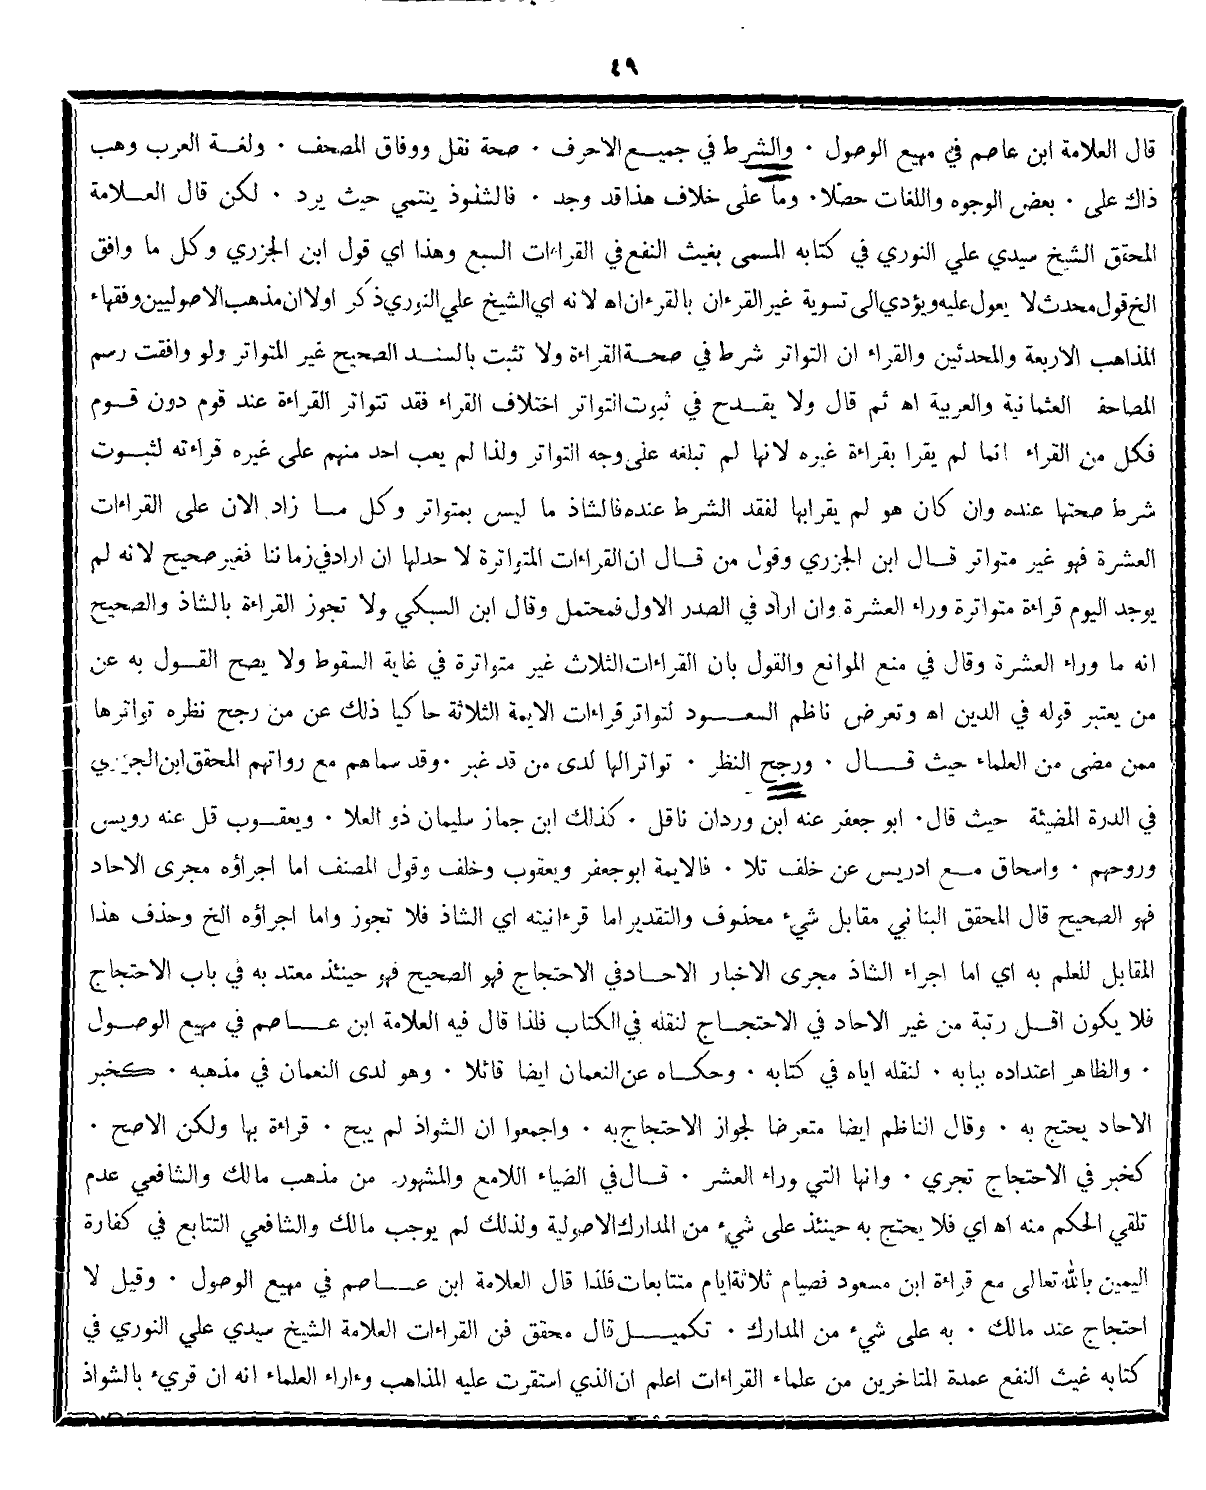 ٤٩
قال العلامة ابن عاصم في مهيع الوصول · والشرط في جميع الاحرف · صحة نقل ووفاق المصحف · ولغة العرب وهب
ذاك على · بعض الوجوه واللغات حصلا · وما على خلاف هذا قد وجد · فالشذوذ ينتمي حيث يرد · لكن قال العلامة
المحقق الشيخ سيدي علي النوري في كتابه المسمى بغيث النفع في القراءات السبع وهذا اي قول ابن الجزري وكل ما وافق
الخ قول محدث لا يعول عليه ويؤدي الى تسوية غير القرءان بالقرءان اه لانه اي الشيخ علي النوري ذكر اولا ان مذهب الاصوليين وفقهاء
المذاهب الاربعة والمحدثين والقراء ان التواتر شرط في صحة القراءة ولا تثبت بالسند الصحيح غير المتواتر ولو وافقت رسم
المصاحف العثمانية والعربية اه ثم قال ولا يقدح في ثبوت التواتر اختلاف القراء فقد تتواتر القراءة عند قوم دون قوم
فكل من القراء انما لم يقرا بقراءة غيره لانها لم تبلغه على وجه التواتر ولذا لم يعب احد منهم على غيره قراءته لثبوت
شرط صحتها عنده وان كان هو لم يقرا بها لفقد الشرط عنده فالشاذ ما ليس بمتواتر وكل ما زاد الان على القراءات
العشرة فهو غير متواتر قال ابن الجزري وقول من قال ان القراءات المتواترة لا حد لها ان اراد في زماننا فغير صحيح لانه لم
يوجد اليوم قراءة متواترة وراء العشرة وان اراد في الصدر الاول فمحتمل وقال ابن السبكي ولا تجوز القراءة بالشاذ والصحيح
انه ما وراء العشرة وقال في منع الموانع والقول بان القراءات الثلاث غير متواترة في غاية السقوط ولا يصح القول به عن
من يعتبر قوله في الدين اه وتعرض ناظم السعود لتواتر قراءات الايمة الثلاثة حاكيا ذلك عن من رجح نظره تواترها
ممن مضى من العلماء حيث قال · ورجح النظر · تواترا لها لدى من قد غبر · وقد سماهم مع رواتهم المحقق ابن الجزري
في الدرة المضيئة حيث قال · ابو جعفر عنه ابن وردان ناقل · كذلك ابن جماز سليمان ذو العلا · ويعقوب قل عنه رويس
وروحهم · واسحاق مع ادريس عن خلف تلا · فالايمة ابو جعفر ويعقوب وخلف وقول المصنف اما اجراؤه مجرى الاحاد
فهو الصحيح قال المحقق البناني مقابل شيء محذوف والتقدير اما قرءانيته اي الشاذ فلا تجوز واما اجراؤه الخ وحذف هذا
المقابل للعلم به اي اما اجراء الشاذ مجرى الاخبار الاحاد في الاحتجاج فهو الصحيح فهو حينئذ معتد به في باب الاحتجاج
فلا يكون اقل رتبة من غير الاحاد في الاحتجاج لنقله في الكتاب فلذا قال فيه العلامة ابن عاصم في مهيع الوصول
· والظاهر اعتداده ببابه · لنقله اياه في كتابه · وحكاه عن النعمان ايضا قائلا · وهو لدى النعمان في مذهبه · كخبر
الاحاد يحتج به · وقال الناظم ايضا متعرضا لجواز الاحتجاج به · واجمعوا ان الشواذ لم يبح · قراءة بها ولكن الاصح ·
كخبر في الاحتجاج تجري · وانها التي وراء العشر · قال في الضياء اللامع والمشهور من مذهب مالك والشافعي عدم
تلقي الحكم منه اه اي فلا يحتج به حينئذ على شيء من المدارك الاصولية ولذلك لم يوجب مالك والشافعي التتابع في كفارة
اليمين بالله تعالى مع قراءة ابن مسعود فصيام ثلاثة ايام متتابعات فلذا قال العلامة ابن عاصم في مهيع الوصول · وقيل لا
احتجاج عند مالك · به على شيء من المدارك · تكميل قال محقق فن القراءات العلامة الشيخ سيدي علي النوري في
كتابه غيث النفع عمدة المتاخرين من علماء القراءات اعلم ان الذي استقرت عليه المذاهب وءاراء العلماء انه ان قريء بالشواذ